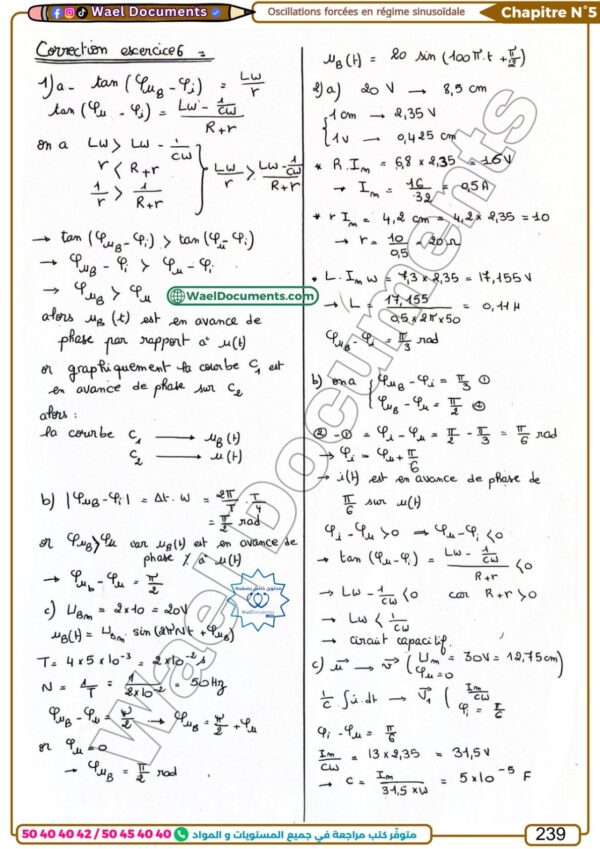 Wael Documents
Oscillations forcées en régime sinusoïdale
Chapitre N°5
Correction exercice 6 :
1) a- tan (φuB - φi) = Lw/r
tan (φu - φi) = (Lw - 1/cw)/(R+r)
on a Lw > Lw - 1/cw
r < R+r
1/r > 1/(R+r)
} Lw/r > (Lw - 1/cw)/(R+r)
→ tan (φuB - φi) > tan (φu - φi)
→ φuB - φi > φu - φi
→ φuB > φu
alors uB (t) est en avance de
phase par rapport a u(t)
or graphiquement la courbe C1 est
en avance de phase sur C2
alors :
la courbe C1 → uB(t)
C2 → u(t)
b) |φuB - φi| = Δt . w = 2π/T . T/4
= π/2 rad
or φuB > φu car uB(t) est en avance de
phase % a u(t)
→ φub - φu = π/2
c) UBm = 2 x 10 = 20V
uB(t) = UBm sin (2πNt + φuB)
T = 4 x 5 x 10⁻³ = 2 x 10⁻² s
N = 1/T = 1/(2x10⁻²) = 50 Hz
φuB - φu = π/2 → φuB = π/2 + φu
or φu = 0
→ φuB = π/2 rad
uB(t) = 20 sin (100π.t + π/2)
2) a) 20 V → 8,5 cm
{ 1 cm → 2,35 V
1v → 0,425 cm
* R.Im = 6,8 x 2,35 = 16 V
→ Im = 16/32 = 0,5 A
* r Im = 4,2 cm = 4,2 x 2,35 = 10
→ r = 10/0,5 = 20 Ω
* L. Im w = 7,3 x 2,35 = 17,155 V
→ L = 17,155/(0,5 x 2π x 50) = 0,11 H
φuB - φi = π/3 rad
b) on a { φuB - φi = π/3 ①
φuB - φu = π/2 ②
② - ① = φi - φu = π/2 - π/3 = π/6 rad
→ φi = φu + π/6
→ i(t) est en avance de phase de
π/6 sur u(t)
φi - φu > 0 ⇒ φu - φi < 0
→ tan (φu - φi) = (Lw - 1/cw)/(R+r) < 0
→ Lw - 1/cw < 0 car R+r > 0
→ Lw < 1/cw
→ circuit capacitif.
c) u → v ( Um = 30V = 12,75cm )
φu = 0
1/C ∫ i.dt → V1 ( Im/cw
φi = π/6
φi - φu = π/6
Im/cw = 13 x 2,35 = 31,5 V
→ C = Im/(31,5 x w) = 5 x 10⁻⁵ F
WaelDocuments.com
Wael Documents
50 40 40 42 / 50 45 40 40
متوفّر كتب مراجعة في جميع المستويات و المواد
239